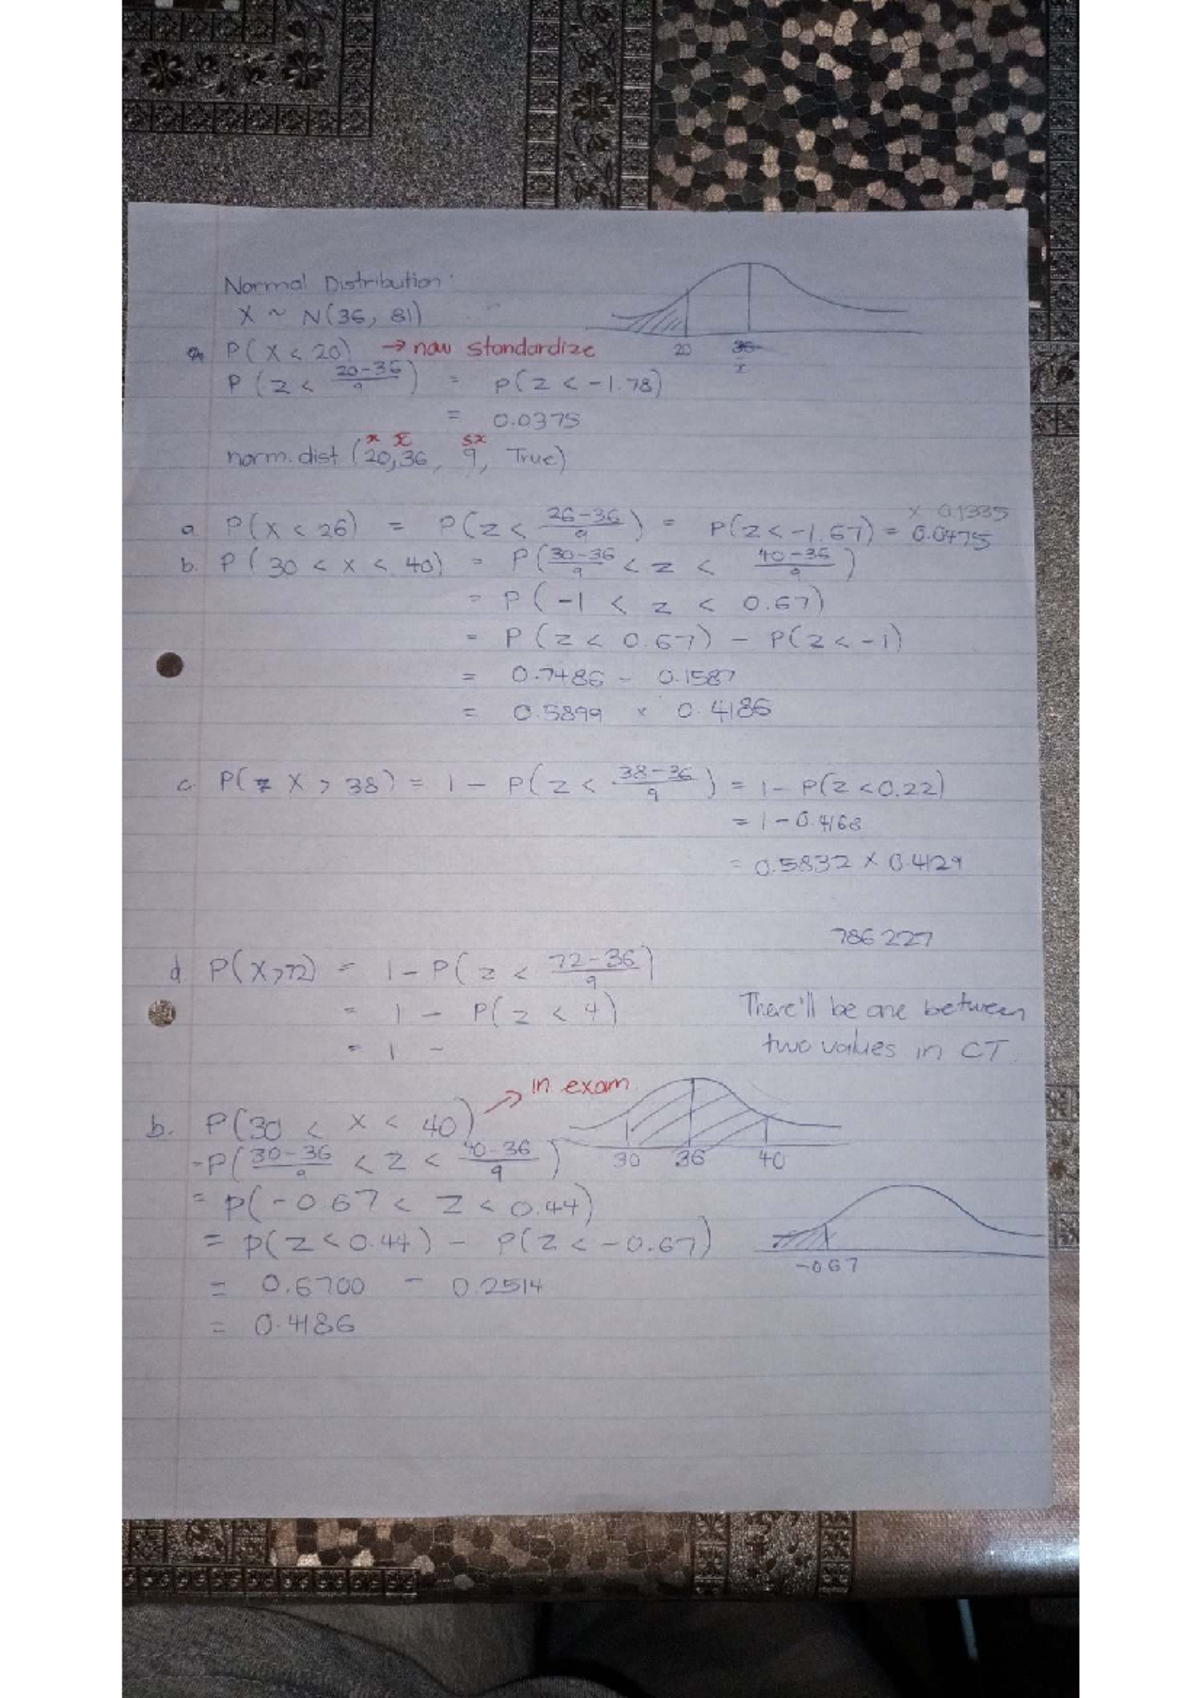 Normal Distribution
X ~ N(36, 81)
P(X < 20) → now standardize
20 36 x̄
P(Z < 20-36/9) = P(Z < -1.78)
= 0.0375
x x̄ sx
norm.dist (20,36, 9, True)
a. P(X < 26) = P(Z < 26-36/9) = P(Z < -1.67) = 0.0475 × 0.1335
b. P(30 < X < 40) = P(30-36/9 < Z < 40-36/9)
= P(-1 < Z < 0.67)
= P(Z < 0.67) - P(Z < -1)
= 0.7486 - 0.1587
= 0.5899 × 0.4186
c. P(X > 38) = 1 - P(Z < 38-36/9) = 1 - P(Z < 0.22)
= 1 - 0.4168
= 0.5832 × 0.4129
786 227
d. P(X > 72) = 1 - P(Z < 72-36/9)
= 1 - P(Z < 4)
= 1 -
There'll be one between
two values in CT.
→ in exam
b. P(30 < X < 40)
30 36 40
= P(30-36/9 < Z < 40-36/9)
= P(-0.67 < Z < 0.44)
= P(Z < 0.44) - P(Z < -0.67)
-0.67
= 0.6700 - 0.2514
= 0.4186